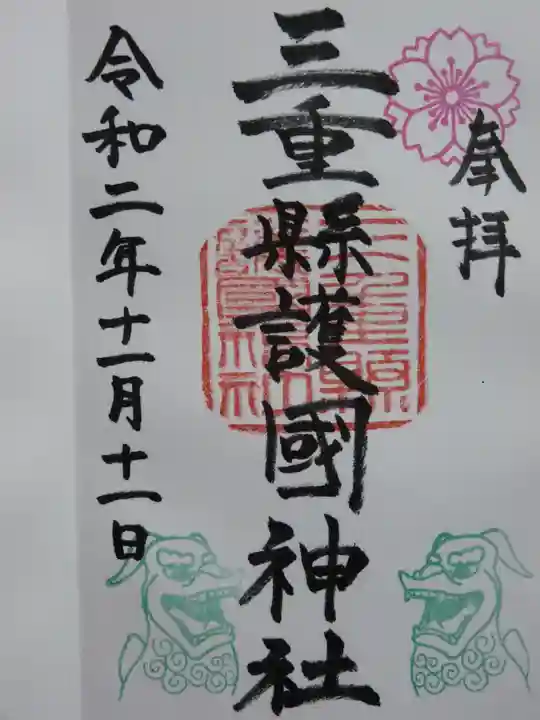 奉拝
三重縣護國神社
令和二年十一月十一日